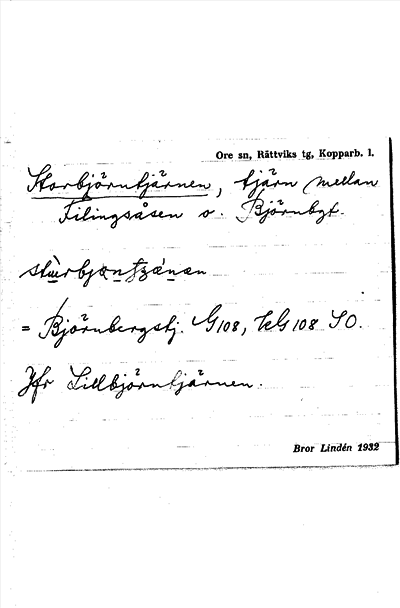 Ore sn, Rättviks tg, Kopparb. l.
Storbjörntjärnen, tjärn mellan
Filingsåsen o. Björnbgt.
= Björnbergstj. G108, EkG108 SO.
Jfr Lillbjörntjärnen.
Bror Lindén 1932